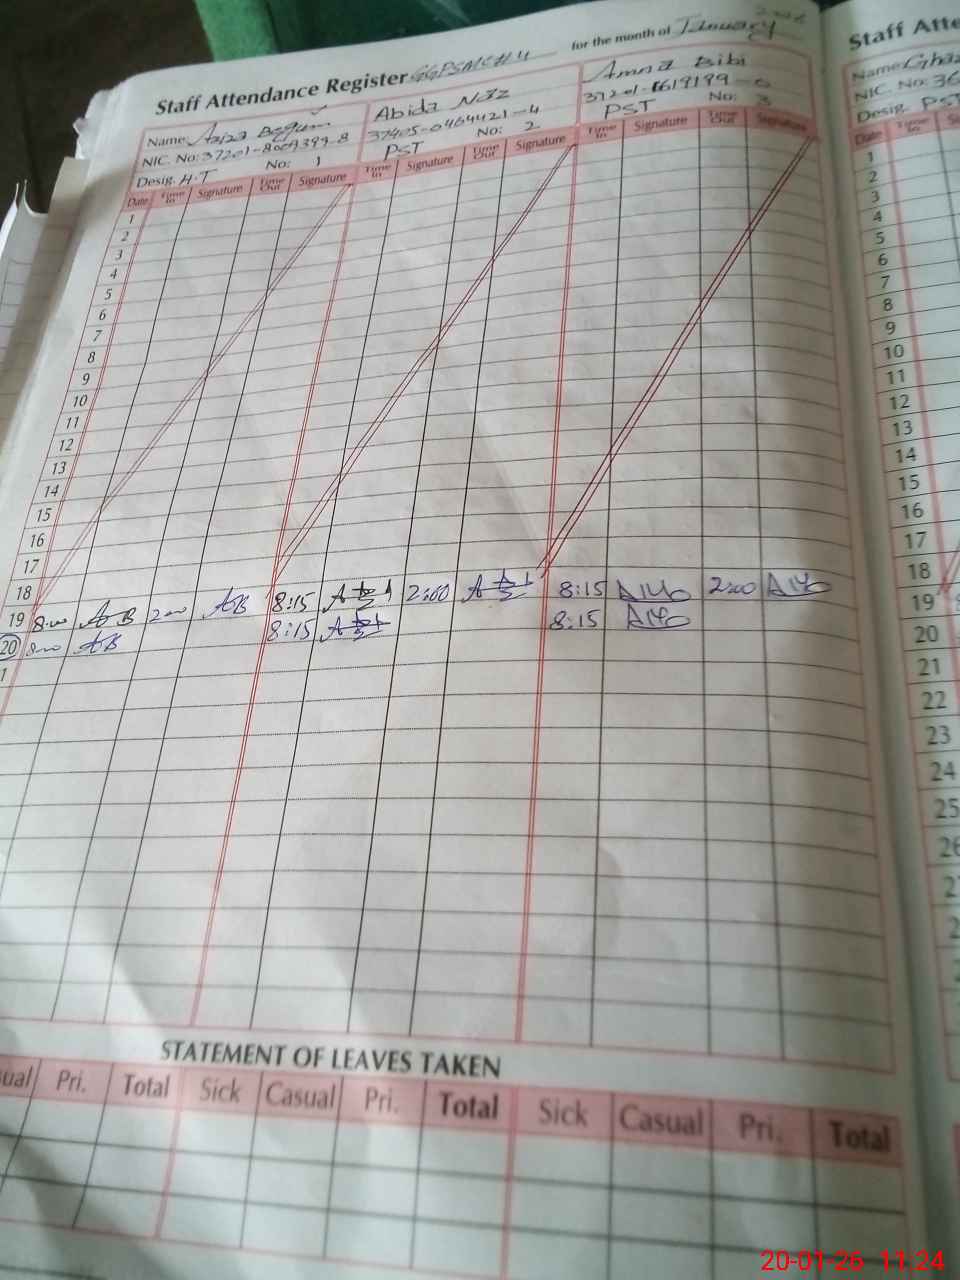 Staff Attendance Register GGPSMCH4 for the month of January
Staff Atte
Name: Aziza Begum
NIC. No: 37201-8009399-8
Desig. H.T No: 1
Abida Naz
37405-0464421-4
PST No: 2
Amna Bibi
37201-6619199-0
PST No: 3
Name:
NIC. No: 36
Desig. PST
Date Time In Signature Time Out Signature Time In Signature Time Out Signature Time In Signature Time Out Signature
Date Time In
1 1
2 2
3 3
4 4
5 5
6 6
7 7
8 8
9 9
10 10
11 11
12 12
13 13
14 14
15 15
16 16
17 17
18 18
19 8:00 AB 2:00 AB 8:15 2:00 8:15 2:00 19
20 8:00 AB 8:15 8:15 20
1 21
22
23
24
25
26
STATEMENT OF LEAVES TAKEN
ual Pri. Total Sick Casual Pri. Total Sick Casual Pri. Total
20-01-26 11:24